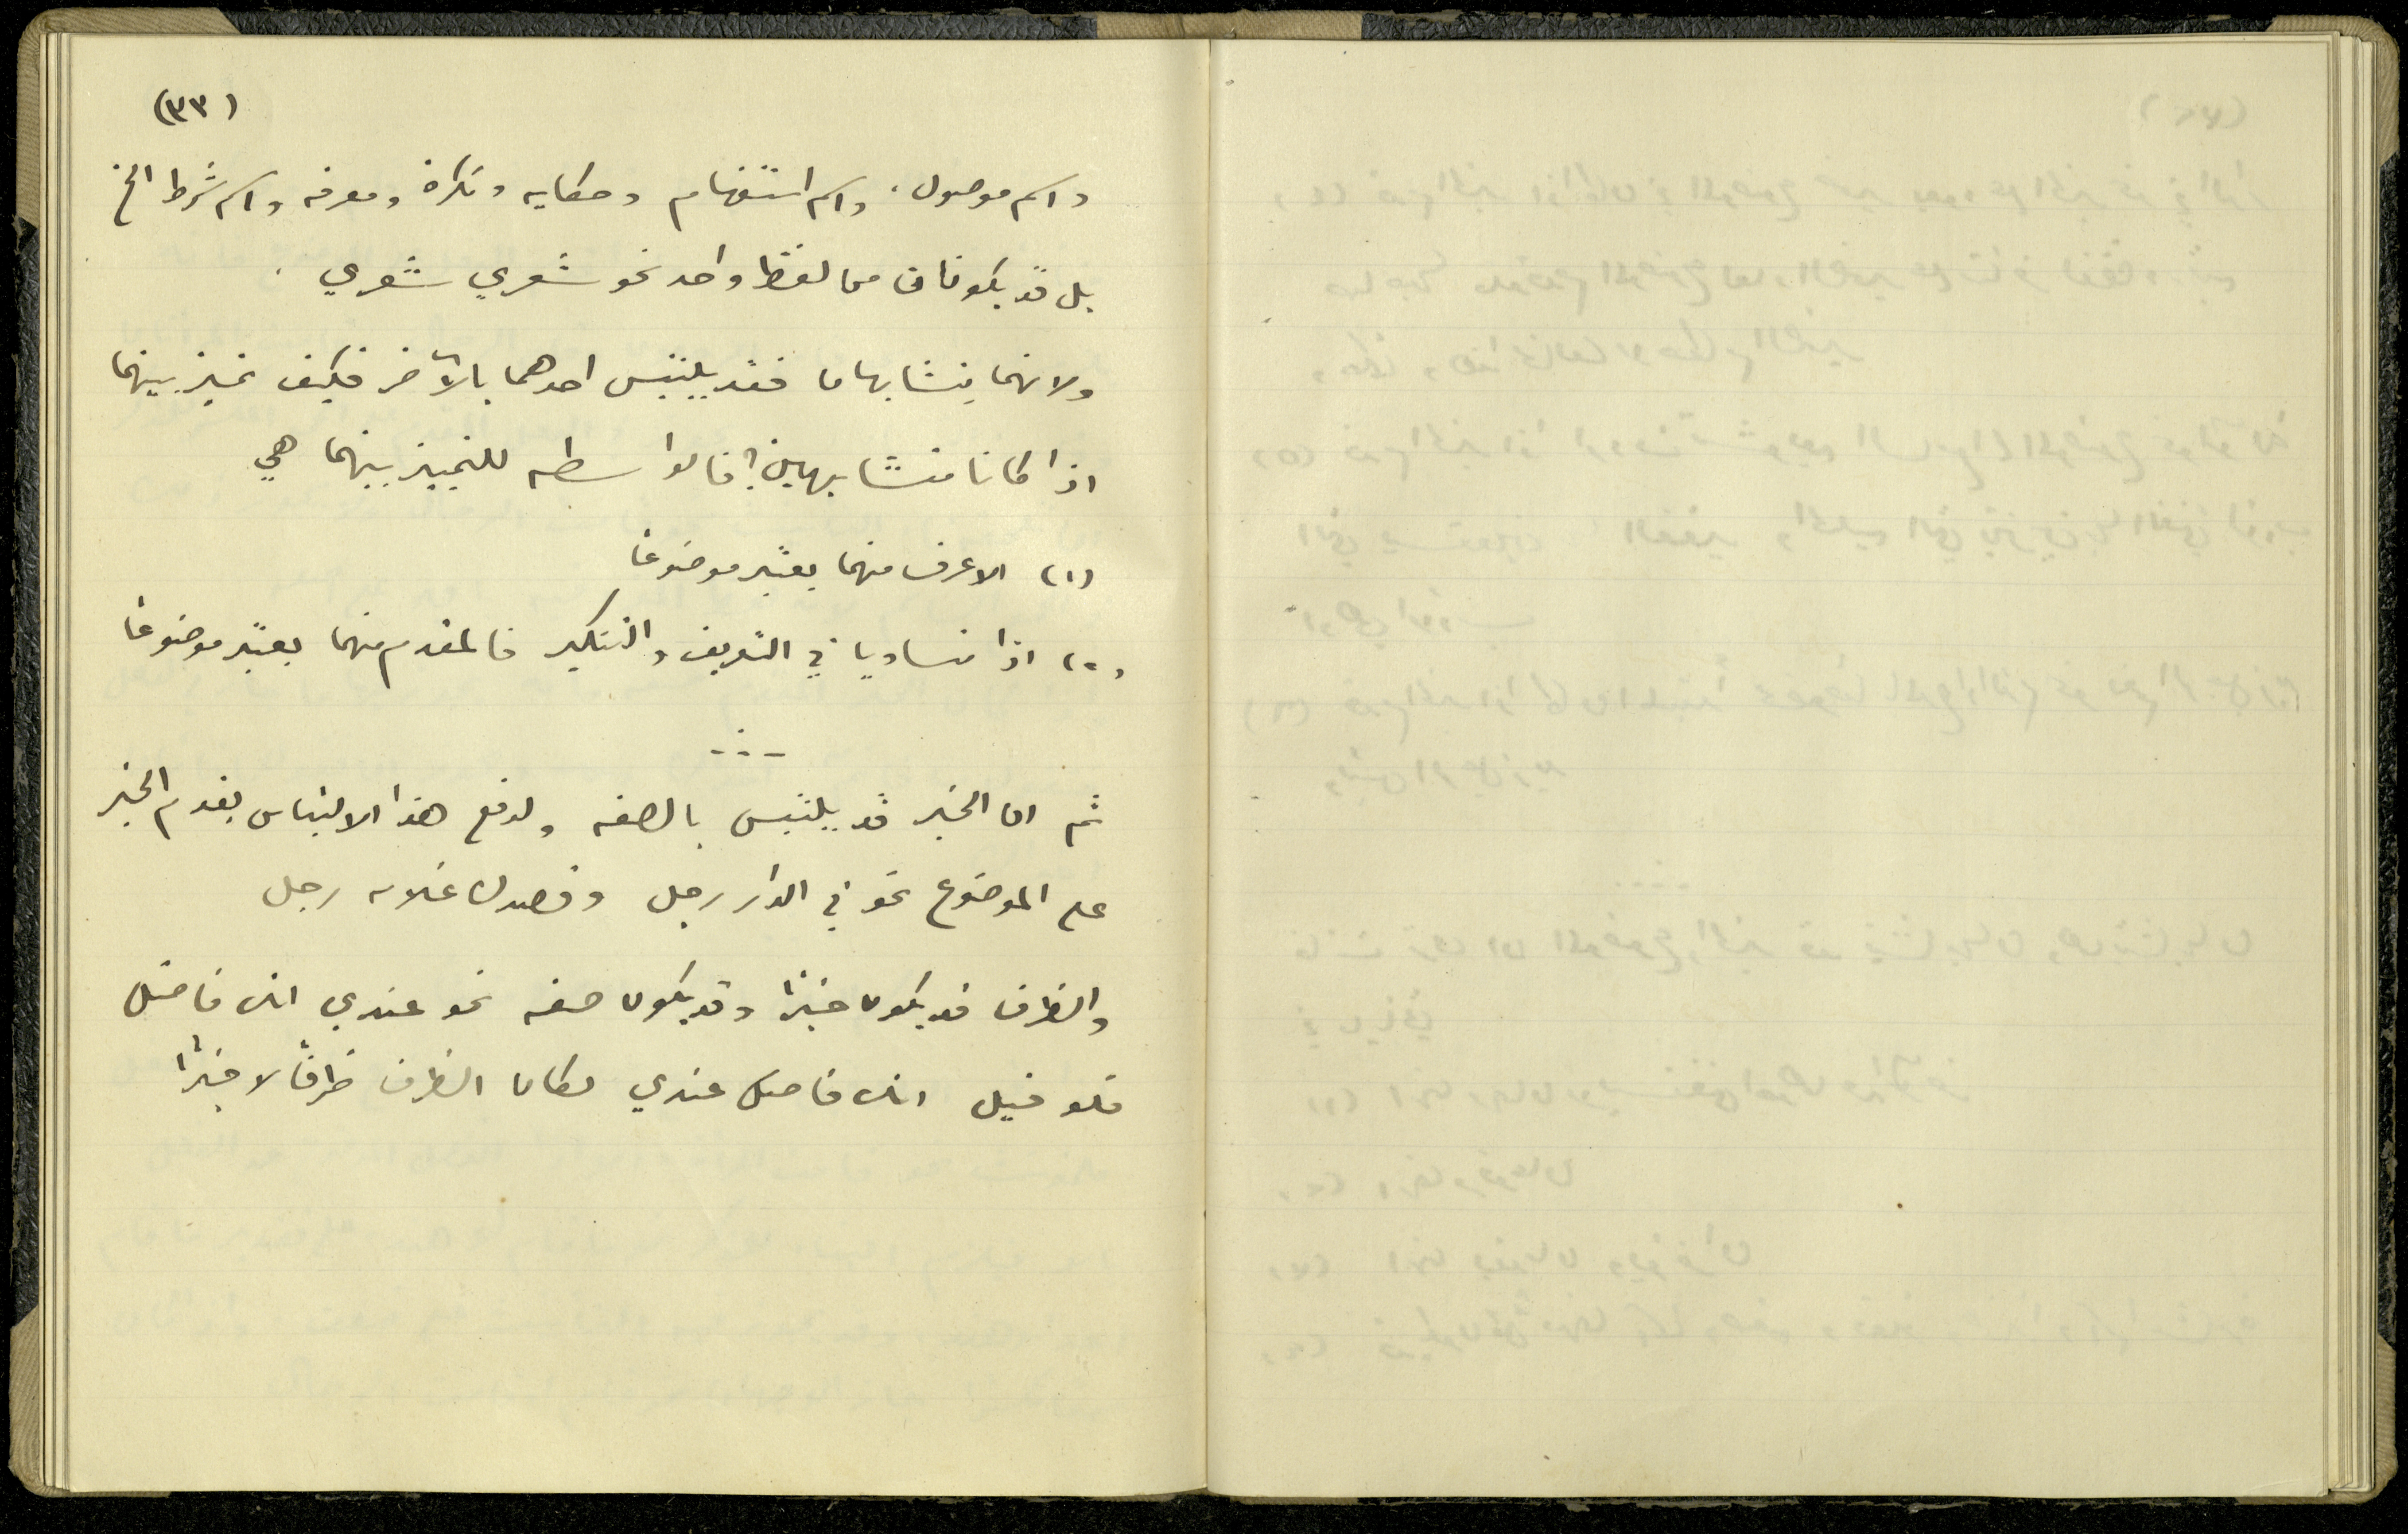 (٣٣)
واسم موصول، واسم استفهام وحكايه ونكرة ومعرفه واسم شرط الخ
بل قد يكونان من لفظ واحد نحو شعري شعري .
ولانهما يتشابهان فقد يلتبس احدهما بالآخر فكيف نميز بينهما
اذا كانا متشابهين؟ فالواسطه للتمييز بينهما هي
(١) الاعرف منهما يعتبر موضوعًا
(٢) اذا تساويا في التعريف والتنكير فالمقدم منهما يعتبر موضوعًا
ثم ان الخبر قد يلتبس بالصفه ولدفع هذا الالتباس يقدم الخبر
على الموضوع نحو في الدار رجل وقصدك غلامه رجل
والظرف قد يكون خبرًا وقد يكون صفه نحو عندي انك فاضل
فلو قيل انك فاضل عندي لكان الظرف ظرفًا لا خبرًا